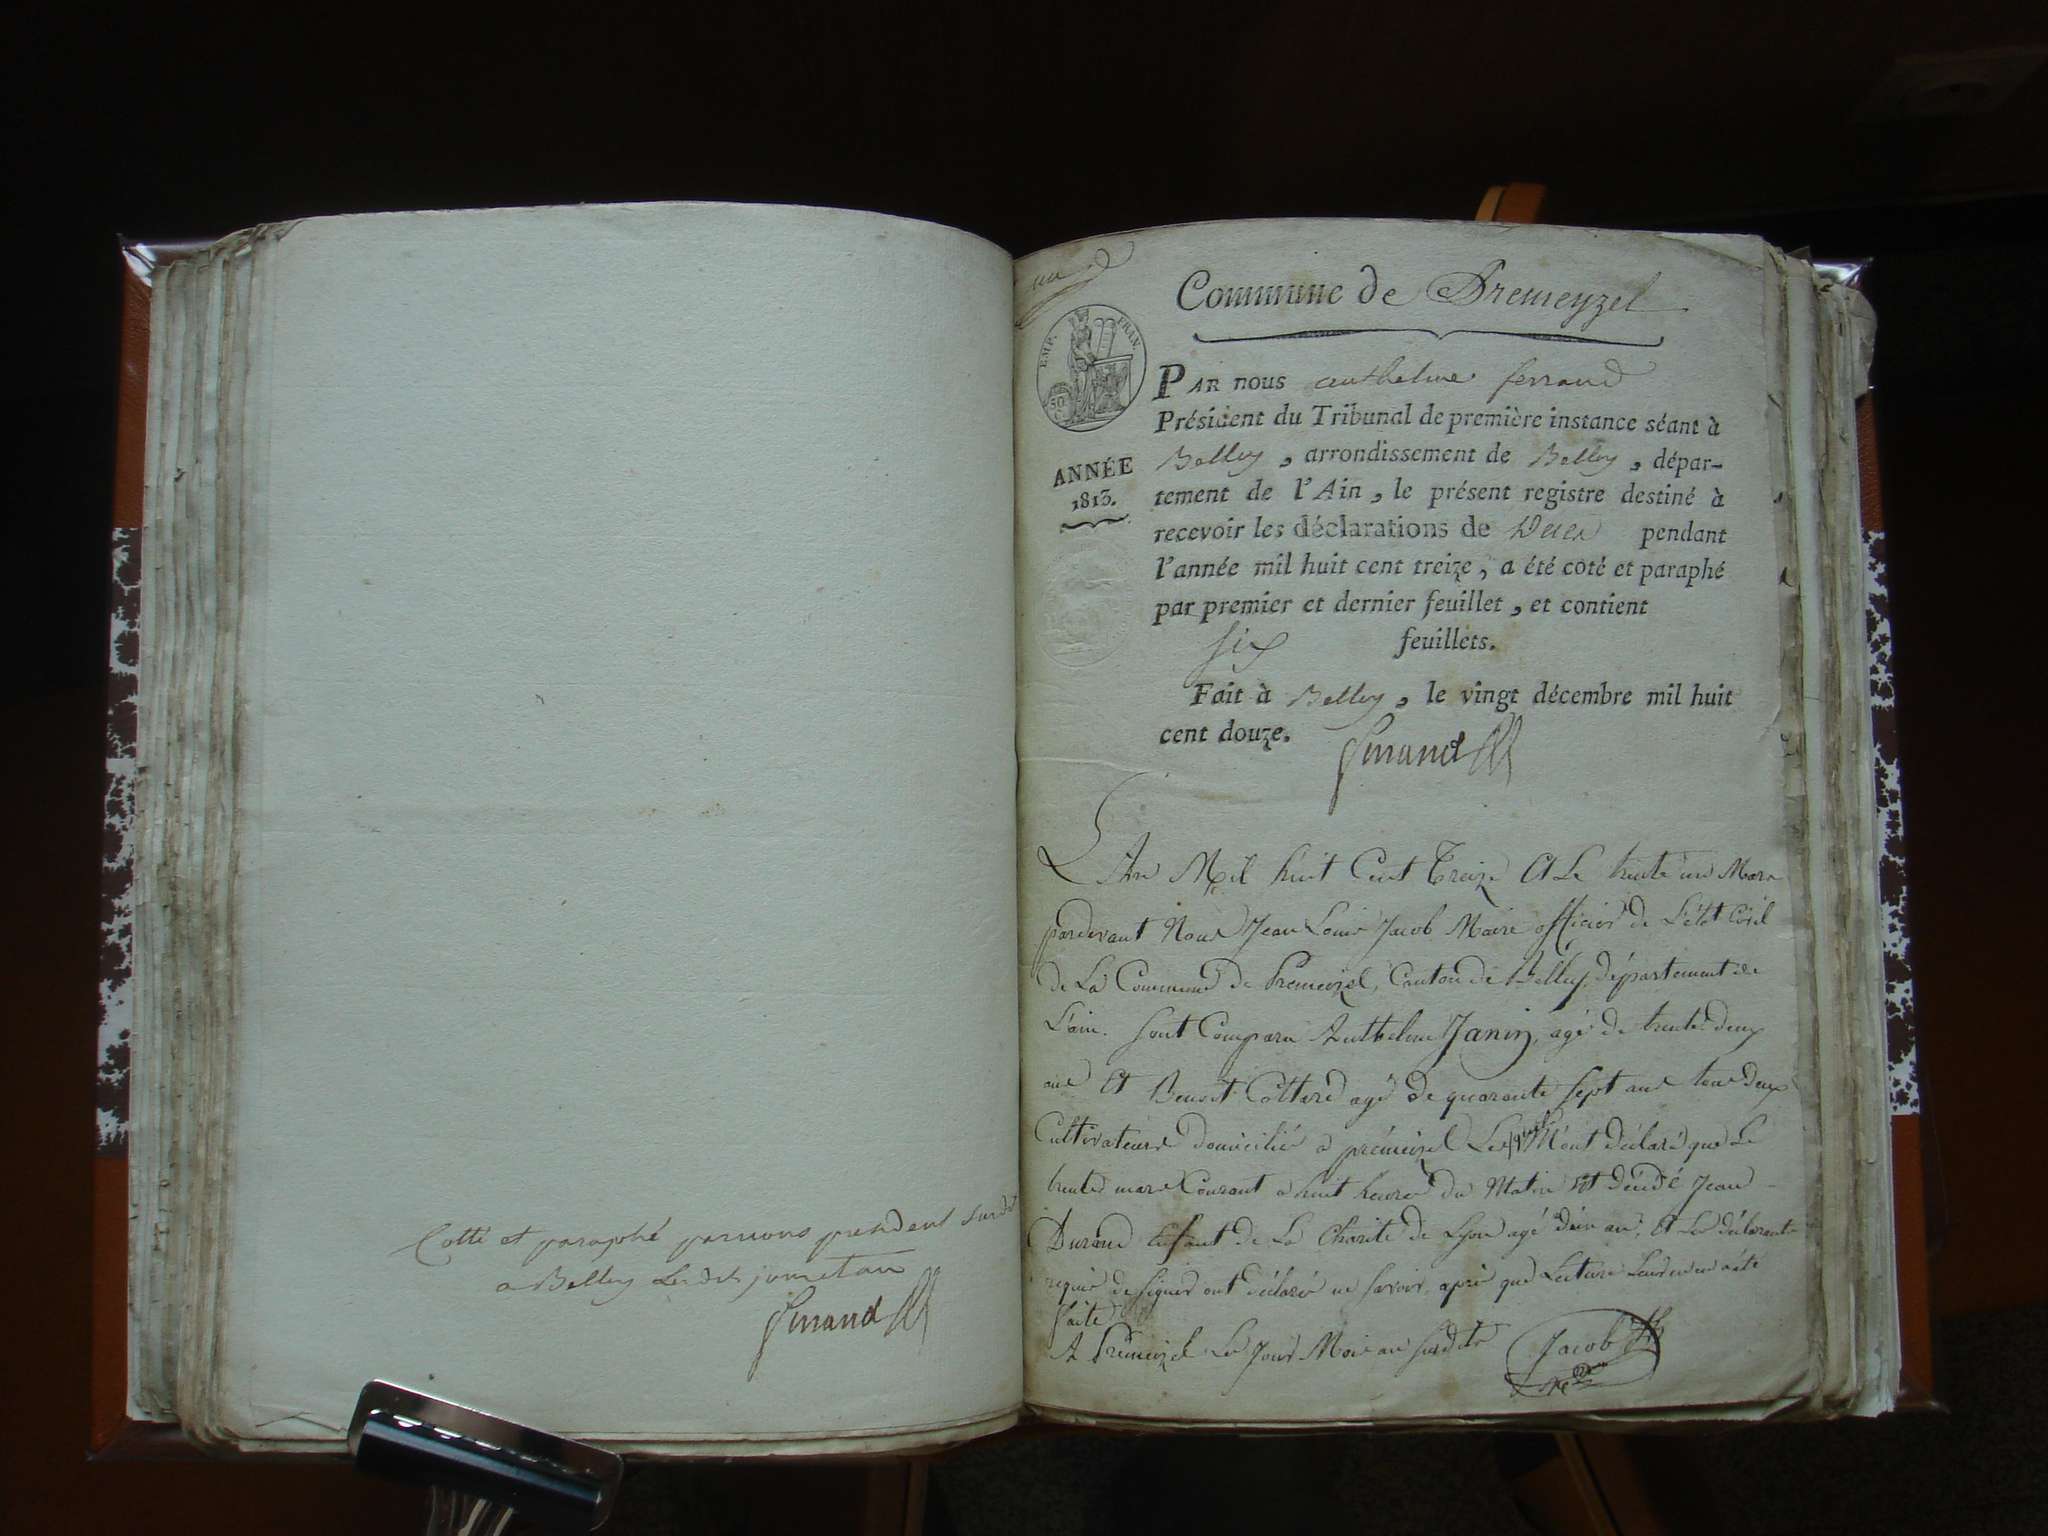 Cotté et paraphé par nous president susdit
a Belley les dits jour et an
Ferrand
un
Commune de Premeyzel
EMP. FRAN.
50 C
ANNÉE
1813.
PAR nous anthelme ferrand
Président du Tribunal de première instance séant à
Belley, arrondissement de Belley, dépar-
tement de l'Ain, le présent registre destiné à
recevoir les déclarations de Décès pendant
l'année mil huit cent treize, a été coté et paraphé
par premier et dernier feuillet, et contient
six feuillets.
Fait à Belley, le vingt décembre mil huit
cent douze.
Ferrand
L'An Mil huit Cent Treize Et Le trente un Mars
pardevant Nous Jean Louis Jacob Maire officier de L'état Civil
de La Commune de Premeizel, Canton de Belley, département de
L'ain. Sont Comparu Anthelme Janin, agé de trente deux
ans Et Benoit Cottard agé de quarante sept ans tous deux
Cultivateurs domicilié a prémeizel Lesquels M'ont déclaré que Le
trente mars Courant a huit heures du Matin Est décédé Jean
Durand Enfant de La Charité de Lyon agé d'un an, Et Les déclarants
requis de signer ont déclaré ne savoir, après que Lecture Leur en a été
faite
A Prémeizel Les Jour Mois an susdits Jacob